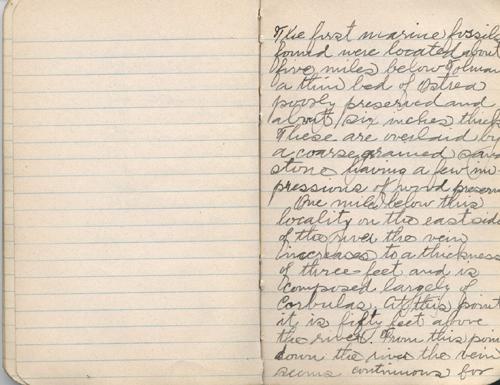 The first marine fossils
found were located about
five miles below Tolman
a thin bed of Ostrea
poorly preserved and
about six inches thick
These are overlaid by
a coarse grained sand
stone having a few im-
pressions of wood preserv
One mile below this
locality on the east side
of the river the vein
increases to a thickness
of three feet and is
composed largely of
Corbulas. At this point
it is fifty feet above
the river. From this poin
down the river the vein
seems continuous for